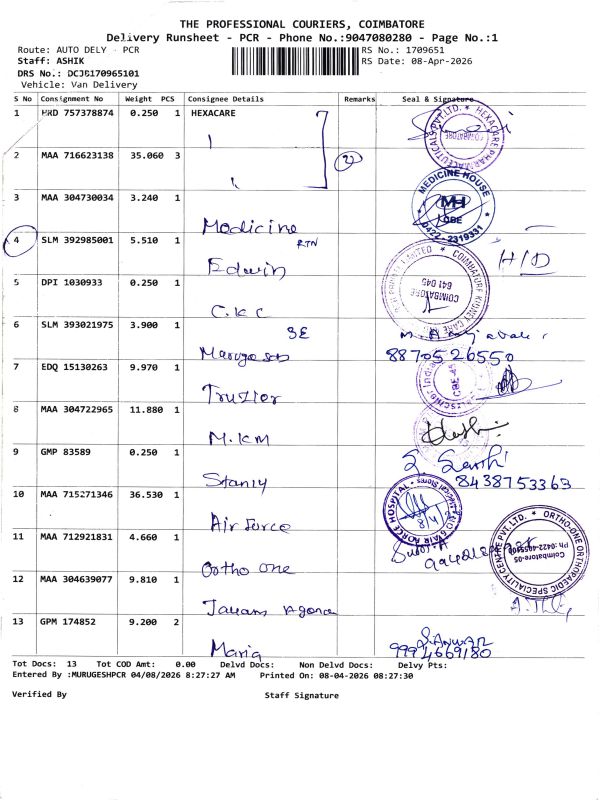 THE PROFESSIONAL COURIERS, COIMBATORE
Delivery Runsheet - PCR - Phone No.:9047080280 - Page No.:1
Route: AUTO DELY - PCR
RS No.: 1709651
Staff: ASHIK
RS Date: 08-Apr-2026
DRS No.: DCJS170965101
Vehicle: Van Delivery
S No Consignment No Weight PCS Consignee Details Remarks Seal & Signature
1 MRD 757378874 0.250 1 HEXACARE
HEXACARE PHARMACEUTICALS PVT.LTD. COIMBATORE
2 MAA 716623138 35.060 3
3 MAA 304730034 3.240 1 Medicine
MEDICINE HOUSE MH CBE 0422 - 2319331
4 SLM 392985001 5.510 1 Edwin RTN
H/D
5 DPI 1030933 0.250 1 C.K.C
COIMBATORE KIDNEY CARE PRIVATE LIMITED COIMBATORE 641 045
6 SLM 393021975 3.900 1 SE
8870526550
7 EDQ 15130263 9.970 1
8 MAA 304722965 11.880 1 M.KM
9 GMP 83589 0.250 1 Stanly
8438753363
10 MAA 715271346 36.530 1 Air force
AIR FORCE HOSPITAL
11 MAA 712921831 4.660 1 Ortho one
ORTHO-ONE ORTHOPAEDIC SPECIALITY CENTRE PVT.LTD. Coimbatore-05
12 MAA 304639077 9.810 1
13 GPM 174852 9.200 2 Maria
S.ANWAR
9994669180
Tot Docs: 13 Tot COD Amt: 0.00 Delvd Docs: Non Delvd Docs: Delvy Pts:
Entered By :MURUGESHPCR 04/08/2026 8:27:27 AM Printed On: 08-04-2026 08:27:30
Verified By Staff Signature